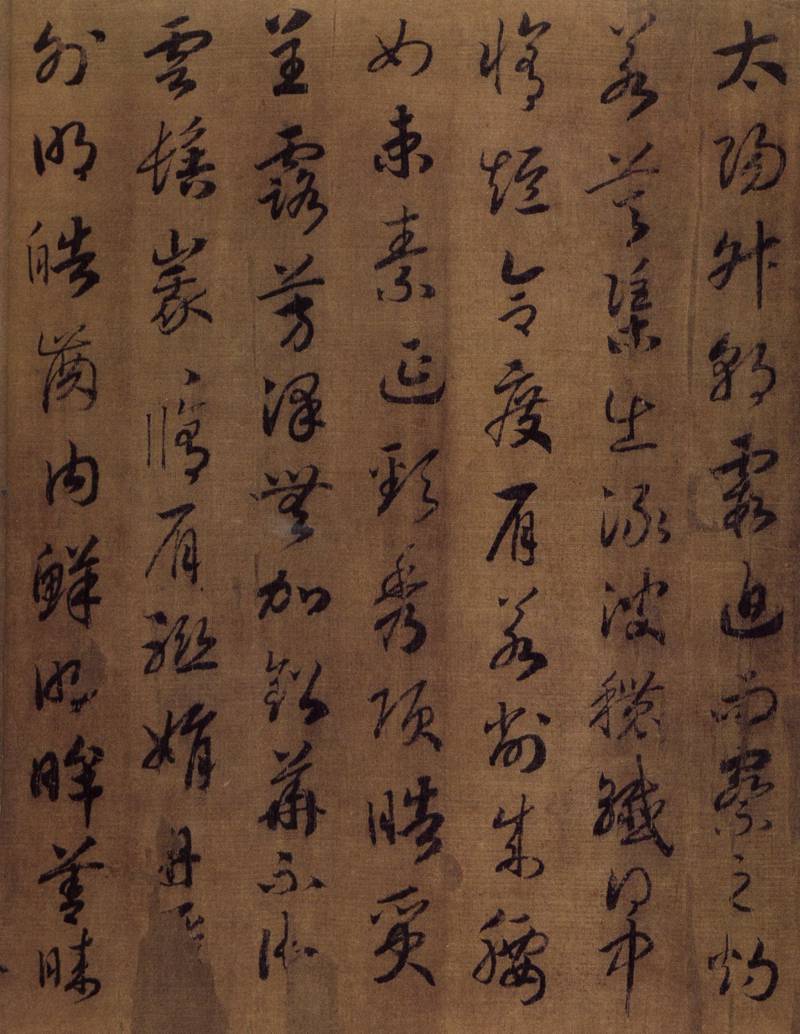 太陽升朝霞迫而察之灼
若芙蕖出淥波穠纖得中
脩短合度肩若削成腰
如束素延頸秀項皓質
呈露芳澤無加鉛華不御
雲髻峩々脩眉聯娟丹
外朗皓齒内鮮明眸善睞